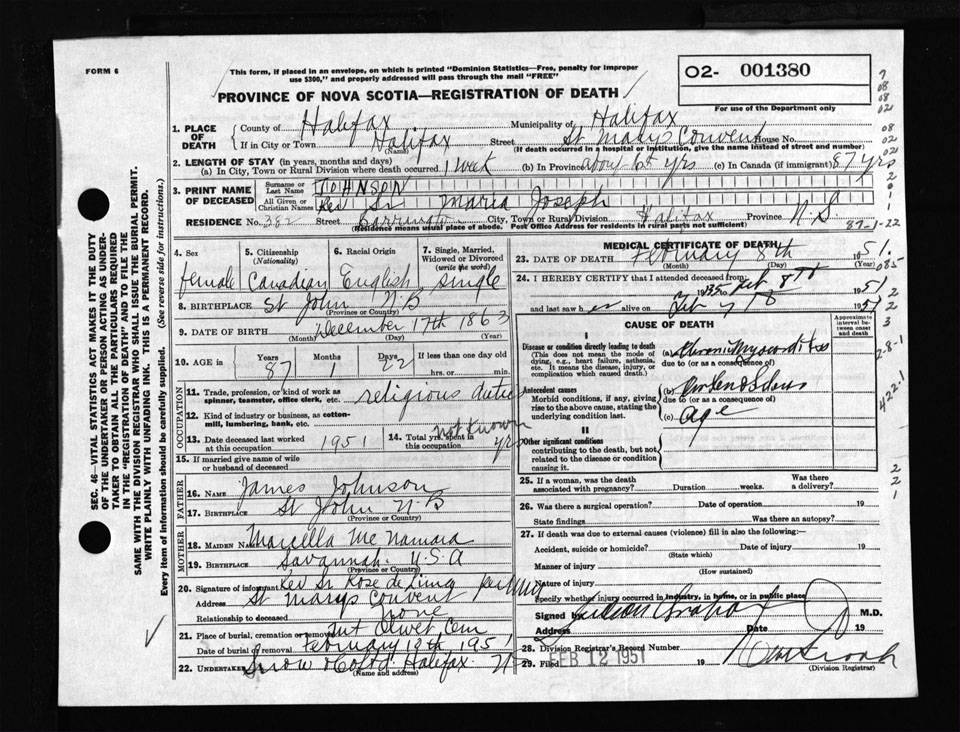 FORM 6
This form, if placed in an envelope, on which is printed "Dominion Statistics—Free, penalty for improper
use $300," and properly addressed will pass through the mail "FREE"
PROVINCE OF NOVA SCOTIA—REGISTRATION OF DEATH
02- 001380
For use of the Department only
1. PLACE OF DEATH
County of Halifax Municipality of Halifax
If in City or Town Halifax (Name) Street St Marys Convent House No.
(If death occurred in a hospital or institution, give the name instead of street and number)
2. LENGTH OF STAY (in years, months and days)
(a) In City, Town or Rural Division where death occurred 1 week (b) In Province about 60 yrs (c) In Canada (if immigrant) 87 yrs
3. PRINT NAME OF DECEASED
Surname or Last Name JOHNSON
All Given or Christian Names Rev Sr Maria Joseph
RESIDENCE No. 382 Street Barrington City, Town or Rural Division Halifax Province N.S.
(Residence means usual place of abode. Post Office Address for residents in rural parts not sufficient)
87-1-22
4. Sex female
5. Citizenship (Nationality) Canadian
6. Racial Origin English
7. Single, Married, Widowed or Divorced (write the word) Single
8. BIRTHPLACE St John N.B
(Province or Country)
9. DATE OF BIRTH December 17th 1863
(Month) (Day) (Year)
10. AGE in Years 87 Months 1 Days 22 If less than one day old hrs. or min.
OCCUPATION
11. Trade, profession, or kind of work as spinner, teamster, office clerk, etc. religious duties
12. Kind of industry or business, as cotton-mill, lumbering, bank, etc.
13. Date deceased last worked at this occupation 1951
14. Total yrs. spent in this occupation not known yrs
15. If married give name of wife or husband of deceased
FATHER
16. NAME James Johnson
17. BIRTHPLACE St John N-B
(Province or Country)
MOTHER
18. MAIDEN NAME Marcella McNamara
19. BIRTHPLACE Savannah. U.S.A
(Province or Country)
20. Signature of informant Rev Sr Rose de Lima per
Address St Marys Convent
Relationship to deceased none
21. Place of burial, cremation or removal Mt Olivet Cem
Date of burial or removal February 195
22. UNDERTAKER Snow & Co Ltd. Halifax. N
(Name and address)
MEDICAL CERTIFICATE OF DEATH
23. DATE OF DEATH February 8th 1951.
(Month) (Day) (Year)
24. I HEREBY CERTIFY that I attended deceased from:
Feb 8th 1951
and last saw her alive on Feb 1951
CAUSE OF DEATH
Approximate interval between onset and death
I
Disease or condition directly leading to death
(This does not mean the mode of dying, e.g., heart failure, asthenia, etc. It means the disease, injury, or complication which caused death.)
(a) Chronic Myocarditis
due to (or as a consequence of)
Antecedent causes
Morbid conditions, if any, giving rise to the above cause, stating the underlying condition last.
(b)
due to (or as a consequence of)
(c) age
II
Other significant conditions
contributing to the death, but not related to the disease or condition causing it.
25. If a woman, was the death associated with pregnancy? Duration weeks. Was there a delivery?
26. Was there a surgical operation? Date of operation 19
State findings Was there an autopsy?
27. If death was due to external causes (violence) fill in the following:—
Accident, suicide or homicide? Date of injury 19
(State which)
Manner of injury
(How sustained)
Nature of injury
Specify whether injury occurred in Industry, in home, or in public place
Signed by M.D.
Address Date 19
28. Division Registrar's Record Number
29. Filed FEB 12 1951 19
(Division Registrar)
SEC. 46—VITAL STATISTICS ACT MAKES IT THE DUTY
OF THE UNDERTAKER OR PERSON ACTING AS UNDER-
TAKER TO OBTAIN ALL THE PARTICULARS REQUIRED
IN THE "REGISTRATION OF DEATH" AND TO FILE THE
SAME WITH THE DIVISION REGISTRAR WHO SHALL ISSUE THE BURIAL PERMIT.
WRITE PLAINLY WITH UNFADING INK. THIS IS A PERMANENT RECORD.
Every item of information should be carefully supplied. (See reverse side for instructions.)